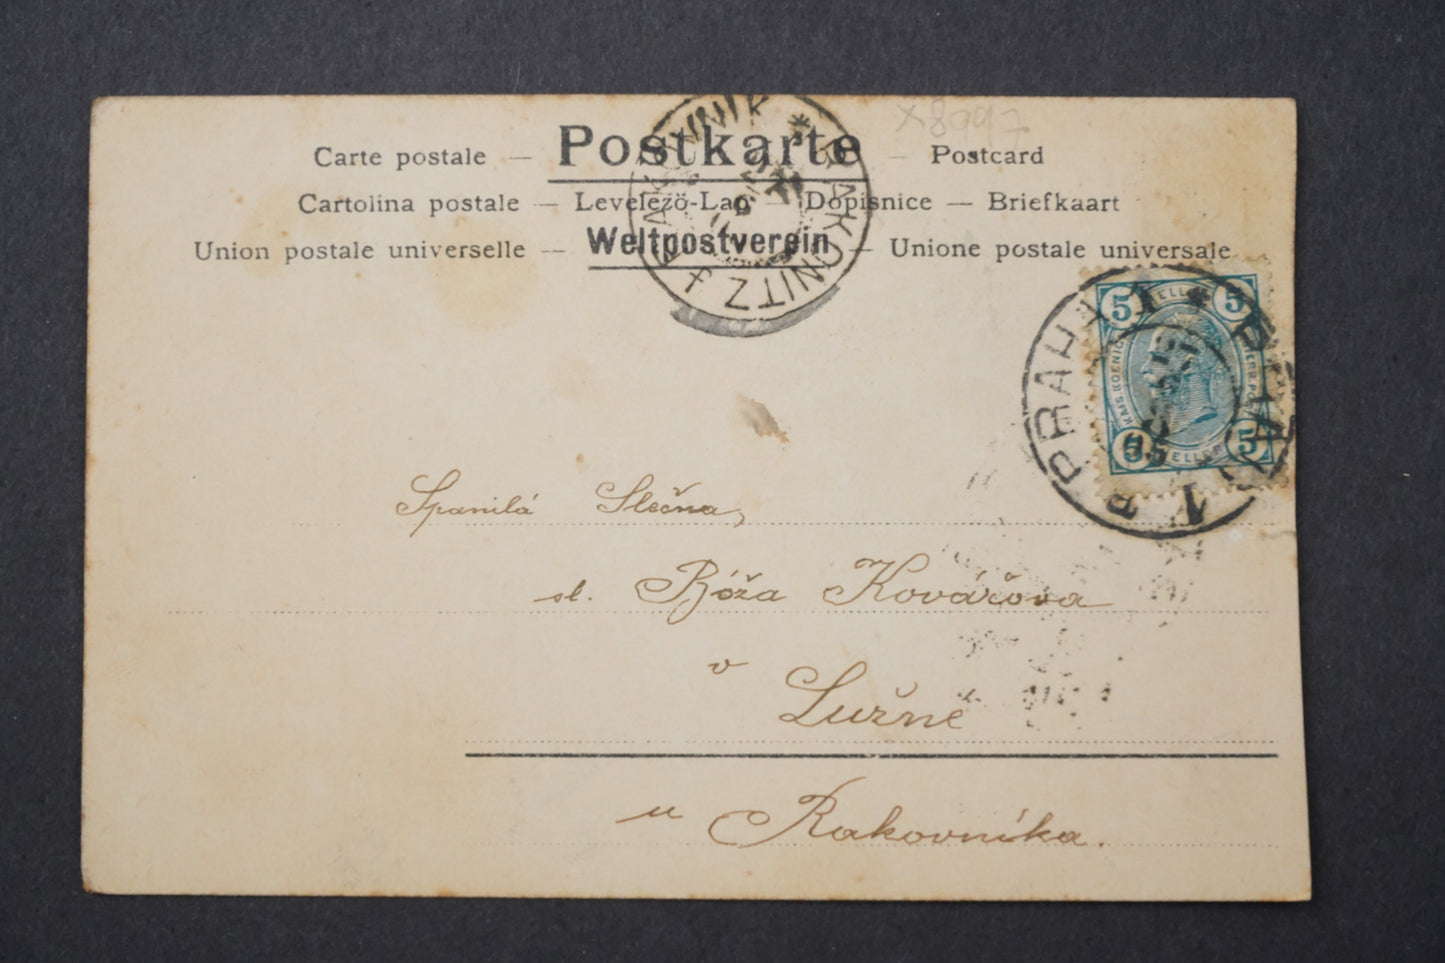 x8997
Carte postale — Postkarte — Postcard
Cartolina postale — Levelező-Lap — Dopisnice — Briefkaart
Union postale universelle — Weltpostverein — Unione postale universale
RAKOVNÍK * RAKONITZ
5 HELLER 5
PRAHA 1 * PRAG 1
5 HELLER 5
Spanilá Slečna,
sl. Róža Kovářova
v
Lužné
u Rakovníka.